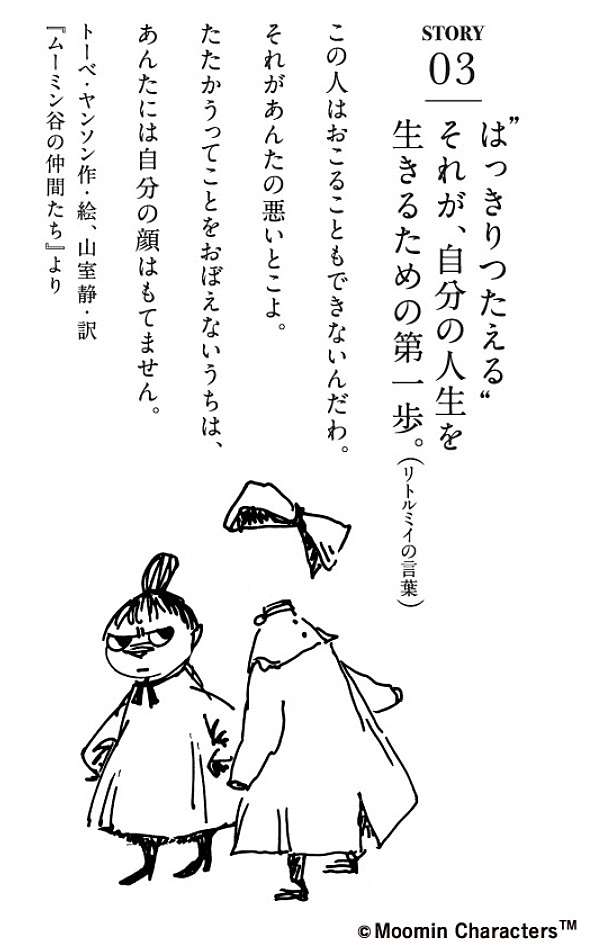 STORY
03
”はっきりつたえる“
それが、自分の人生を
生きるための第一歩。（リトルミイの言葉）
この人はおこることもできないんだわ。
それがあんたの悪いとこよ。
たたかうってことをおぼえないうちは、
あんたには自分の顔はもてません。
トーベ・ヤンソン作・絵、山室静・訳
『ムーミン谷の仲間たち』より
©Moomin Characters™